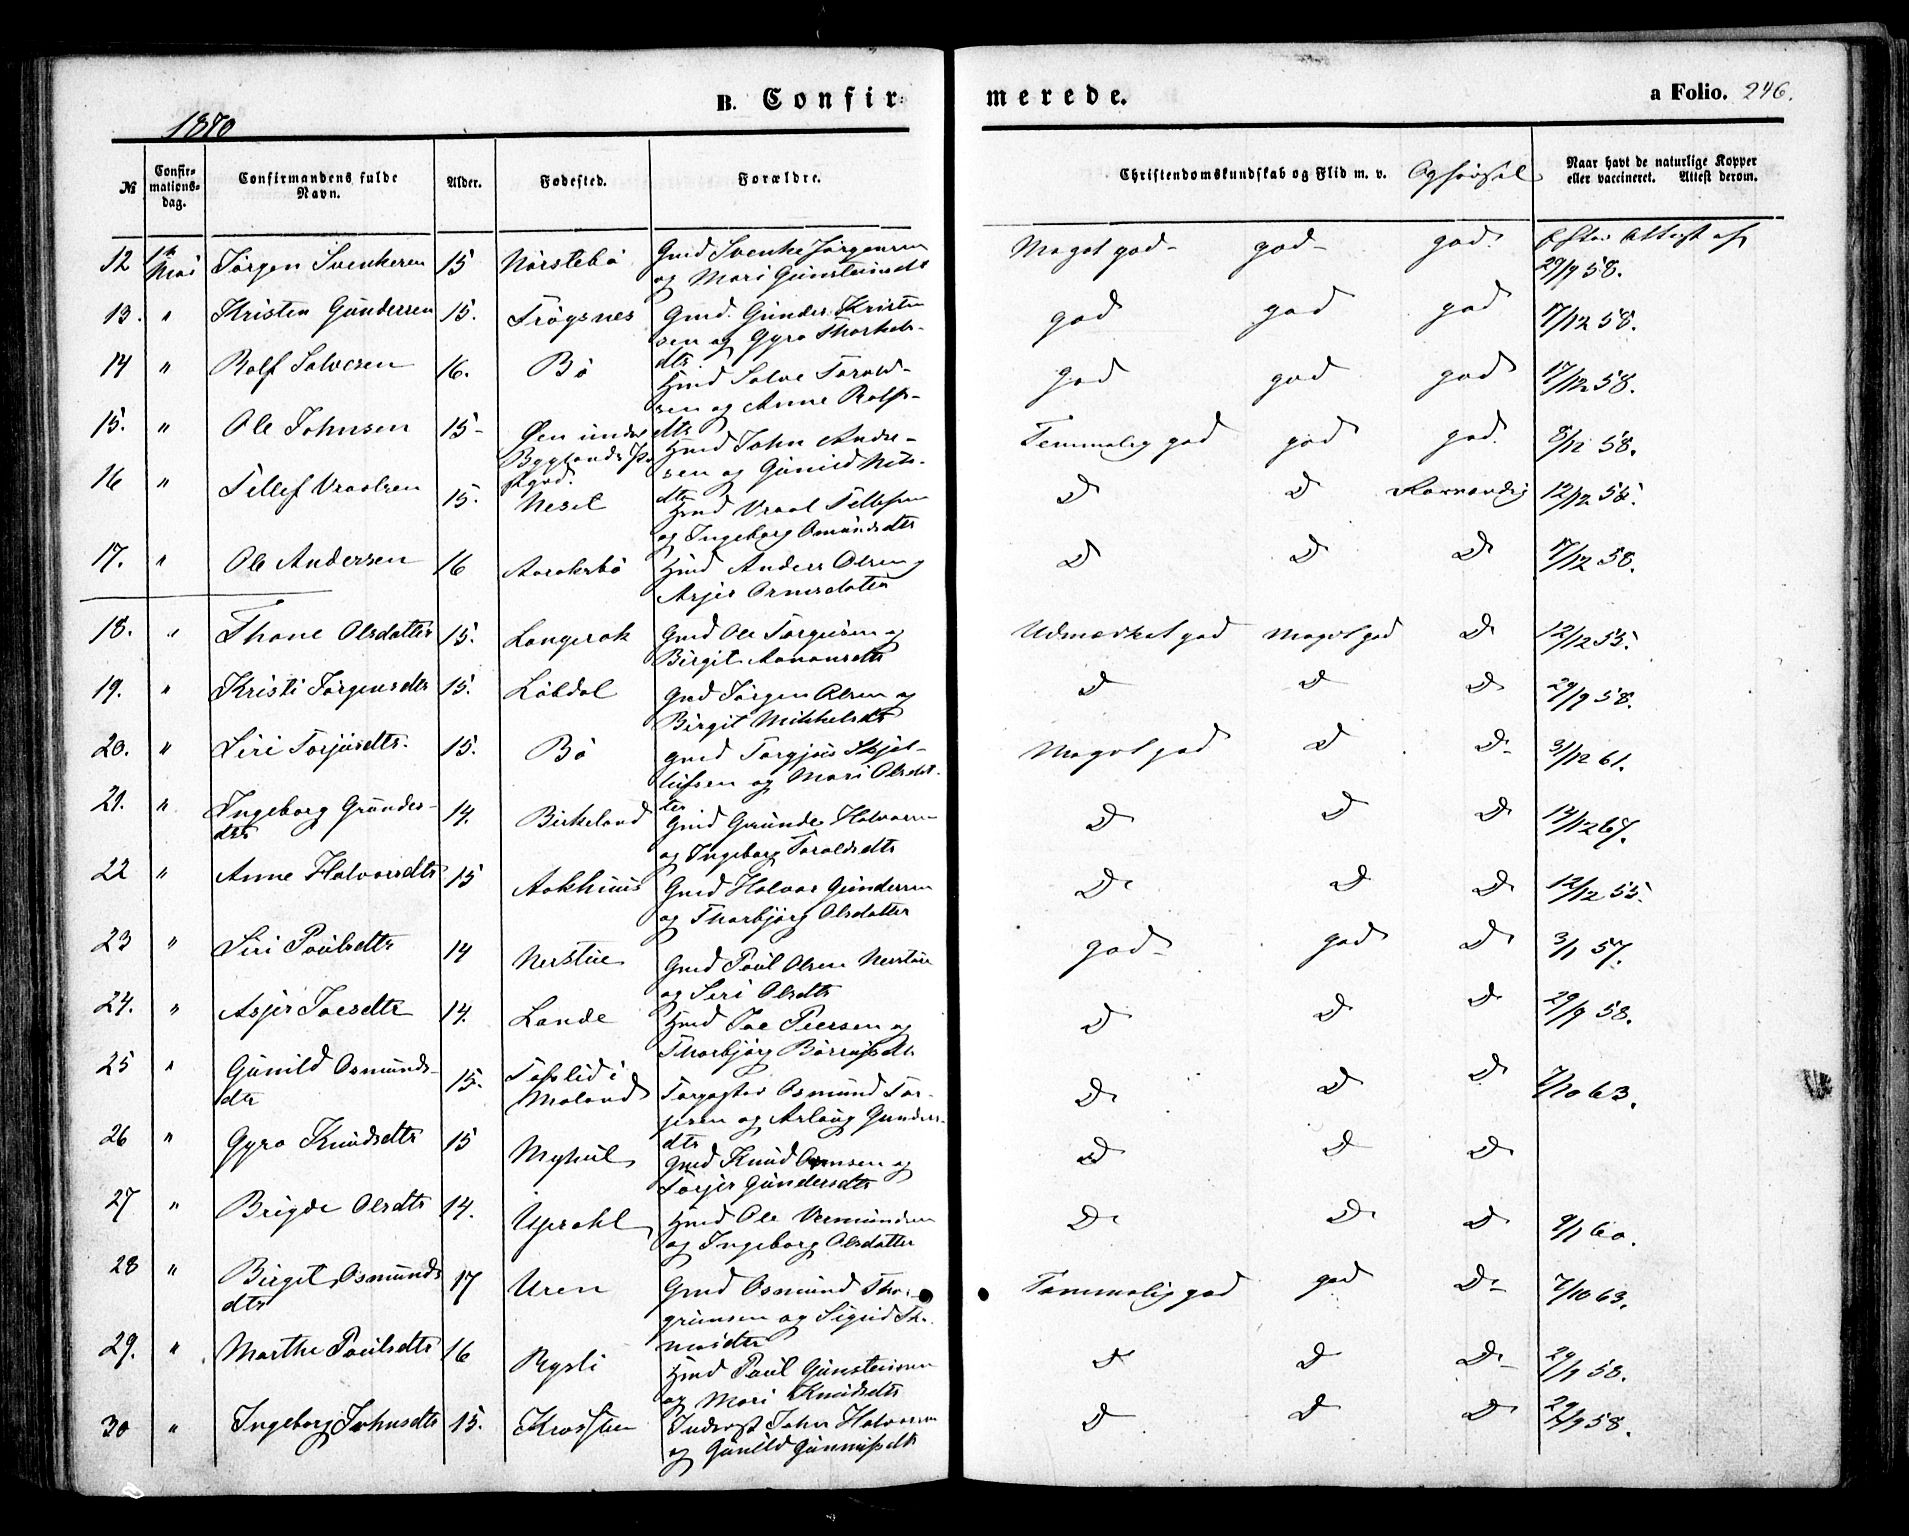 B. Confir-
merede.
a Folio. 246.
1870
№
Confir-
mations-
dag.
Confirmandens fulde
Navn.
Alder.
Fødested.
Forældre.
Christendomskundskab og Flid m. v.
Opførsel
Naar havt de naturlige Kopper
eller vaccineret. Attest derom.
12 Mai Jørgen Svenkesen 15 Nørstebø Gmd Svenke Jørgensen
og Mari Gunsteinsdt
Meget god god god. Efter Attest af
29/9 58.
13. " Kristen Gundersen 15. Frøysnes Gmd. Gunder Kristen
sen og Gyro Thorkels-
dtr.
god god god 17/12 58.
14 " Rolf Salvesen 16. Bø Hmd Salve Torald-
sen og Anne Rolfs-
dtr
god god god 17/12 58.
15. " Ole Johnsen 15 Øen under
Byglands
Hmd John Andre-
sen og Gunild Nils-
dtr
Temmelig god god god. 8/12 58.
16 " Tellef Vraalsen 15. Nesel Hmd Vraal Tellefsen
og Ingeborg Osmundsdtr
D D 12/12 58.
17. " Ole Andersen 16 Hmd Anders Olsen og
Asjer Ormsdatter
D D D 17/12 58.
18. " Thone Olsdatter 15. Langerak Gmd Ole Torgeirsen og
Birgit Aanonsdtr
Udmærket god Meget god D 12/12 55.
19. " Kristi Jørgensdtr 15. Løbdal Gmd Jørgen Olsen og
Birgit Mikkelsdtr
D D D 29/9 58.
20. " Siri Torjusdtr. 15. Bø Gmd Torgjus Skjøl-
lufsen og Mari Olsdat-
ter
Meget god D D 3/12 61.
21. " Ingeborg Gunders-
dtr
14. Birkeland Gmd Gunder Halvorsen
og Ingeborg Toraldsdtr
D D D 12/12 67.
22 " Anne Halvorsdtr 15 Aakhuus Gmd Halvor Gundersen
og Thorbjørg Olsdatter
D D D 12/12 55.
23 " Siri Poulsdtr 14 Nerstue Gmd Poul Olsen Nerstue
og Siri Olsdtr
god god D 3/1 57.
24. " Asjer Joesdtr 14. Lande Hmd Joe Peersen og
Thorbjørg
D D D 29/9 58.
25 " Gunild Osmunds-
dtr
15. Tofslid i
Moland
Osmund Tor-
jesen og Aslaug Gunders-
dtr
D D D 7/10 63.
26 " Gyro Knudsdtr 15 Myhul Gmd Knud og
Torjer Gundersdtr
D D D
27 " Brigde Olsdtr 14. Hmd Ole Vermundsen
og Ingeborg Olsdatter
D D D 9/1 60.
28 " Birgit Osmunds
dtr
17 Uren Gmd Osmund Thor-
grimsen og Sigrid
Temmelig god god D 7/10 63.
29. " Marthe Poulsdtr 16 Rysli Hmd Poul Gunsteinsen
og Mari Knudsdtr
D D D 29/9 58.
30 " Ingeborg Johnsdtr 15. John Halvorsen
og Gunild
D D D 29/9 58.